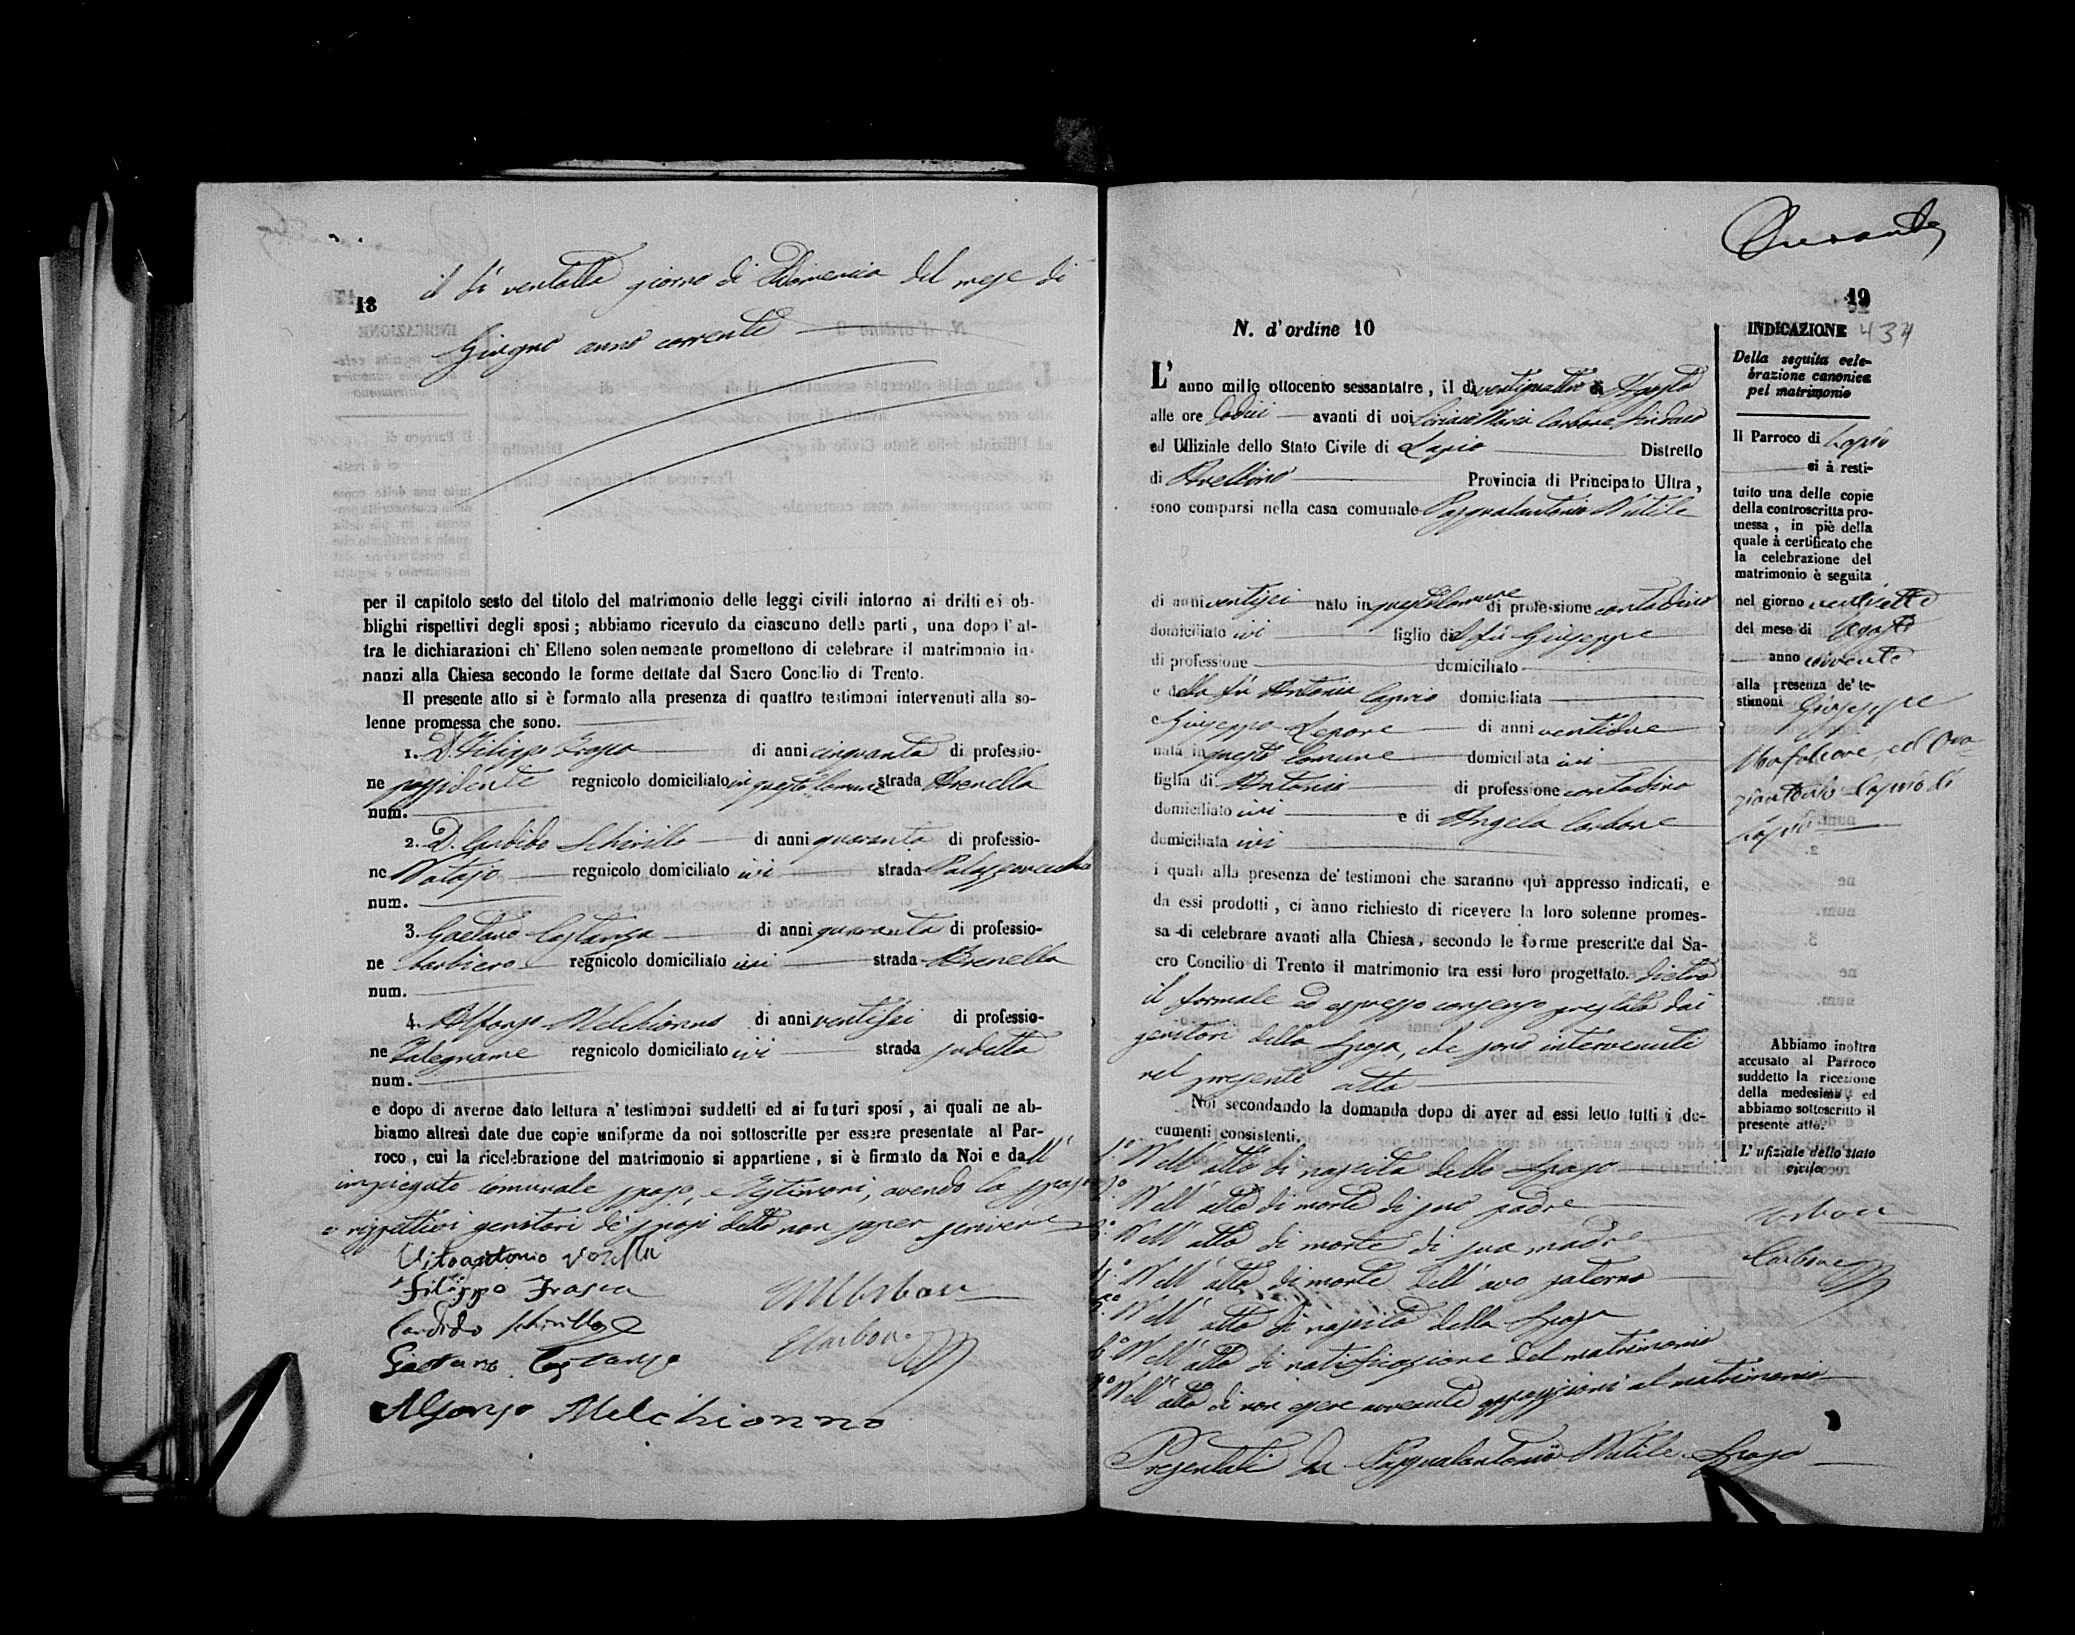 18
il dì ventotto giorno di Domenica del mese di
Giugno anno corrente
per il capitolo sesto del titolo del matrimonio delle leggi civili intorno ai dritti ei ob-
blighi rispettivi degli sposi; abbiamo ricevuto da ciascuno delle parti, una dopo l'al-
tra le dichiarazioni ch'Elleno solennemente promettono di celebrare il matrimonio in-
nanzi alla Chiesa secondo le forme dettate dal Sacro Concilio di Trento.
Il presente atto si è formato alla presenza di quattro testimoni intervenuti alla so-
lenne promessa che sono.
1. D. Filippo Frasca di anni cinquanta di professio-
ne possidente regnicolo domiciliato in questo Comune strada Arenella
num.
2. D. Candido Schirillo di anni quaranta di professio-
ne Notajo regnicolo domiciliato ivi strada Palazzovecchio
num.
3. Gaetano Costanza di anni quaranta di professio-
ne barbiero regnicolo domiciliato ivi strada Arenella
num.
4. Alfonso Melchionno di anni ventisei di professio-
ne Falegname regnicolo domiciliato ivi strada sudetta
num.
e dopo di averne dato lettura a' testimoni suddetti ed ai futuri sposi, ai quali ne ab-
biamo altresì date due copie uniforme da noi sottoscritte per essere presentate al Par-
roco, cui la ricelebrazione del matrimonio si appartiene, si è firmato da Noi e dall'
impiegato comunale sposo, e testimoni, avendo la sposa
e rispettivi genitori de' sposi detto non saper scrivere
Vitoantonio
Filippo Frasca
Candido Schirillo
Gaetano Costanza
Carbone
Alfonso Melchionno
19
434
N. d'ordine 10
L'anno mille ottocento sessantatre, il dì ventiquattro di Agosto
alle ore dodici avanti di noi Ciriaco Maria Carbone Sindaco
ed Uffiziale dello Stato Civile di Lapio Distretto
di Avellino Provincia di Principato Ultra,
sono comparsi nella casa comunale Pasqualantonio Nutile
di anni ventisei nato in questo Comune di professione contadino
domiciliato ivi figlio del fu Giuseppe
di professione domiciliato
e della fu Antonia Caprio domiciliata
e Giuseppa Lepore di anni ventidue
nata in questo Comune domiciliata ivi
figlia di Antonio di professione contadino
domiciliato ivi e di Angela Carbone
domiciliata ivi
i quali alla presenza de' testimoni che saranno qui appresso indicati, e
da essi prodotti, ci ànno richiesto di ricevere la loro solenne promes-
sa di celebrare avanti alla Chiesa, secondo le forme prescritte dal Sa-
cro Concilio di Trento il matrimonio tra essi loro progettato. dietro
il formale ed espresso consenso prestato dai
genitori della sposa, che sono intervenuti
nel presente atto
Noi secondando la domanda dopo di aver ad essi letto tutti i do-
cumenti consistenti.
1.° Nell'atto di nascita dello sposo
2.° Nell'atto di morte di suo padre
3.° Nell'atto di morte di sua madre
4.° Nell'atto di morte dell'avo paterno
5.° Nell'atto di nascita della sposa
6.° Nell'atto di notificazione del matrimonio
7.° Nell'atto di non essere avvenute opposizioni al matrimonio
Presentati da Pasqualantonio Nutile sposo
INDICAZIONE
Della seguita cele-
brazione canonica
pel matrimonio
Il Parroco di Lapio
ci à resti-
tuito una delle copie
della controscritta pro-
messa, in piè della
quale à certificato che
la celebrazione del
matrimonio è seguita
nel giorno ventisette
del mese di Agosto
anno corrente
alla presenza de' te-
stimoni Giuseppe
ed Ora-
ziantonio Caprio di
Lapio
Abbiamo inoltre
accusato al Parroco
suddetto la ricezione
della medesima, ed
abbiamo sottoscritto il
presente atto.
L'ufiziale dello stato
civile
Carbone